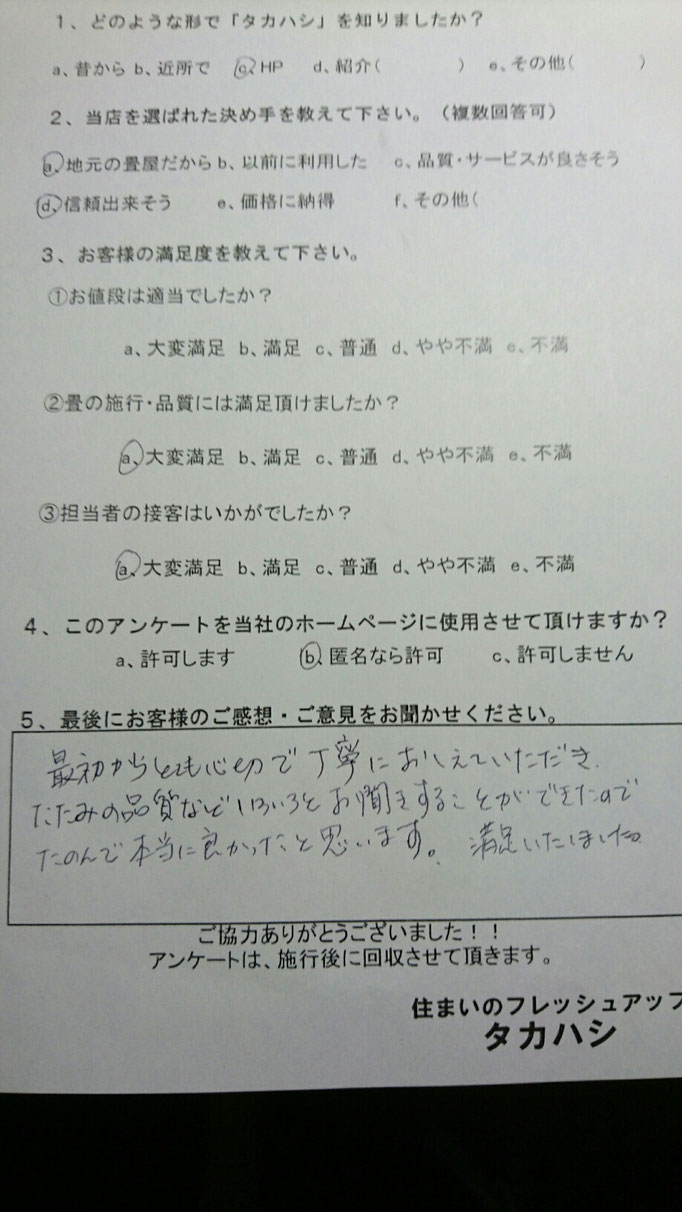 1、どのような形で「タカハシ」を知りましたか？
a、昔から b、近所で c、HP d、紹介( ) e、その他( )
2、当店を選ばれた決め手を教えて下さい。（複数回答可）
a、地元の畳屋だから b、以前に利用した c、品質・サービスが良さそう
d、信頼出来そう e、価格に納得 f、その他(
3、お客様の満足度を教えて下さい。
①お値段は適当でしたか？
a、大変満足 b、満足 c、普通 d、やや不満 e、不満
②畳の施行・品質には満足頂けましたか？
a、大変満足 b、満足 c、普通 d、やや不満 e、不満
③担当者の接客はいかがでしたか？
a、大変満足 b、満足 c、普通 d、やや不満 e、不満
4、このアンケートを当社のホームページに使用させて頂けますか？
a、許可します b、匿名なら許可 c、許可しません
5、最後にお客様のご感想・ご意見をお聞かせください。
最初からとても心切で丁寧におしえていただき、
たたみの品質などいろいろとお聞きすることができたので
たのんで本当に良かったと思います。満足いたしました。
ご協力ありがとうございました！！
アンケートは、施行後に回収させて頂きます。
住まいのフレッシュアップ
タカハシ